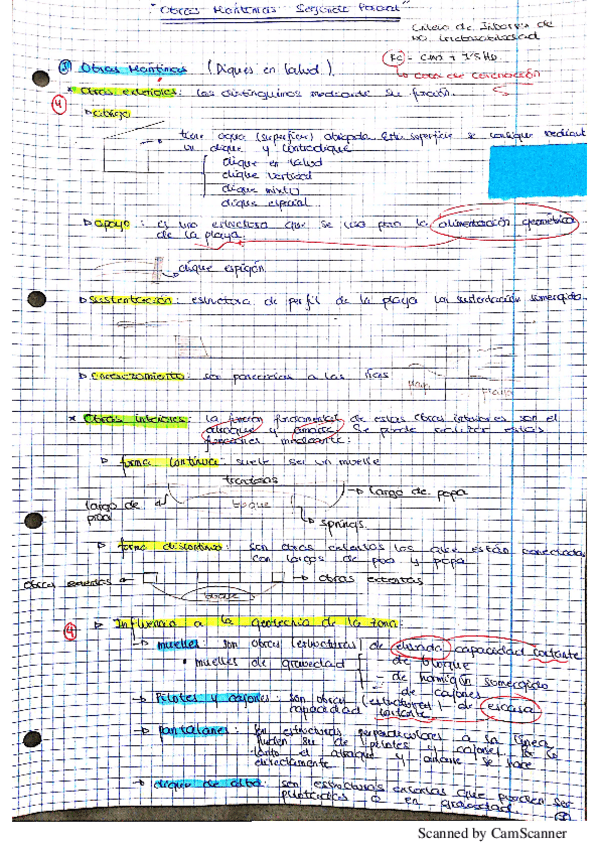 "Obras Marítimas Segundo Parcial"
Obras Marítimas (Diques en talud.)
cota de coronación
* Obras exteriores: las distinguimos mediante su función.
4
▷ abrigo
tiene agua (superficie) abrigada. Esta superficie se consigue mediante
un dique y contradique
dique en talud
dique vertical
dique mixto
dique especial
▷ apoyo: es una estructura que se usa para la alimentación geométrica
de la playa.
dique espigón
▷ Sustentación: estructura de perfil de la playa con sustentación sumergido.
▷ Encauzamiento: son parecidas a las rías
playa
* Obras interiores: la función fundamental de estas obras interiores son el
atraque y amarre. Se puede realizar estas
funciones mediante:
▷ forma continua: suele ser un muelle.
traveses
largo de popa
largo de
proa
buque
springs
▷ forma discontinua: son obras exentas las que están conectadas
con largos de proa y popa
obras exentas
obras exentas
buque
4
▷ Influencia a la geotecnia de la zona:
muelles: son obras (estructuras) de elevada capacidad portante
• muelles de gravedad
de bloque
de hormigón sumergido
de cajones
Pilotes y cajones: son obras (estructuras) de escasa
capacidad portante
Pantalanes: son estructuras perpendiculares a la línea
pueden ser de pilotes y cajones. Por lo
tanto el atraque y amarre se hace
directamente.
duques de alba: son estructuras exentas que pueden ser
pilotados o en gravedad
Scanned by CamScanner